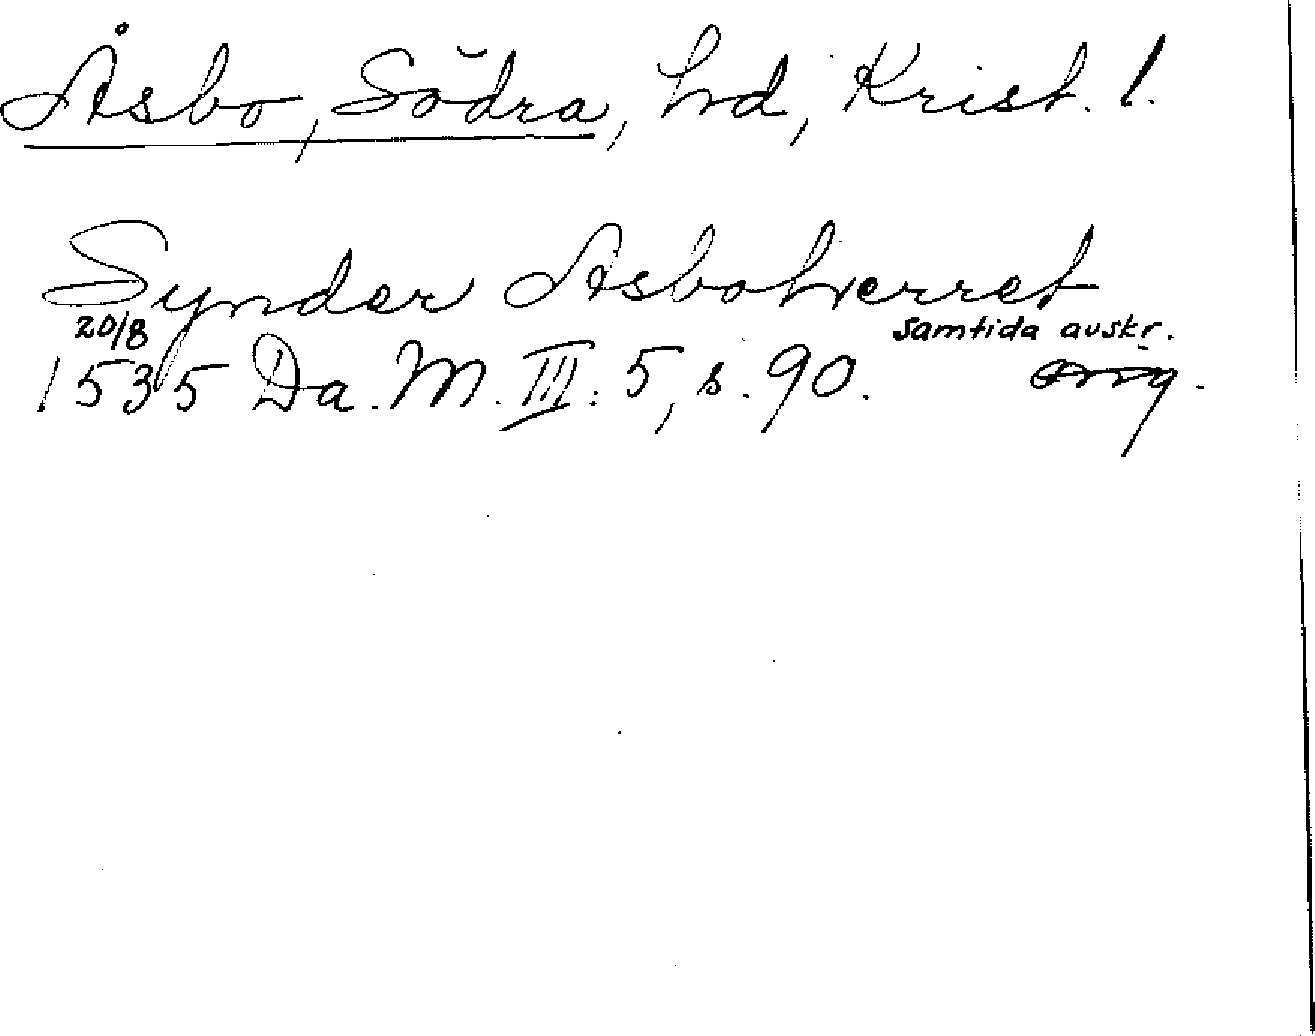 Åsbo, Södra, hd, Krist. l.
Synder Asboherret
20/8 samtida avskr.
1535 Da. M. III. 5, s. 90. orig.